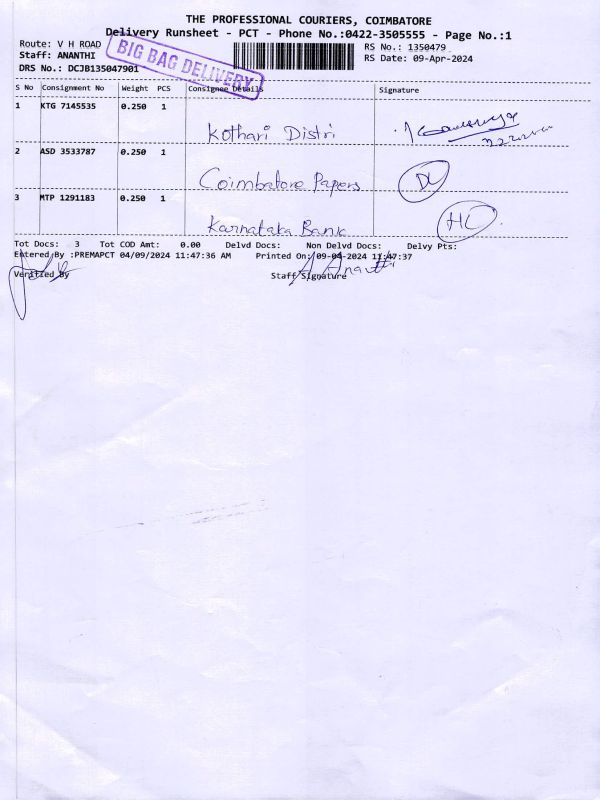 THE PROFESSIONAL COURIERS, COIMBATORE
Delivery Runsheet - PCT - Phone No.:0422-3505555 - Page No.:1
Route: V H ROAD
RS No.: 1350479
Staff: ANANTHI
RS Date: 09-Apr-2024
DRS No.: DCJB135047901
BIG BAG DELIVERY
S No Consignment No Weight PCS Consignee Details Signature
1 KTG 7145535 0.250 1
Kothari Distri
2 ASD 3533787 0.250 1
Coimbatore Papers DL
3 MTP 1291183 0.250 1
Karnataka Bank HC
Tot Docs: 3 Tot COD Amt: 0.00 Delvd Docs: Non Delvd Docs: Delvy Pts:
Entered By :PREMAPCT 04/09/2024 11:47:36 AM Printed On: 09-04-2024 11:47:37
Verified By Staff Signature
A. Ananthi